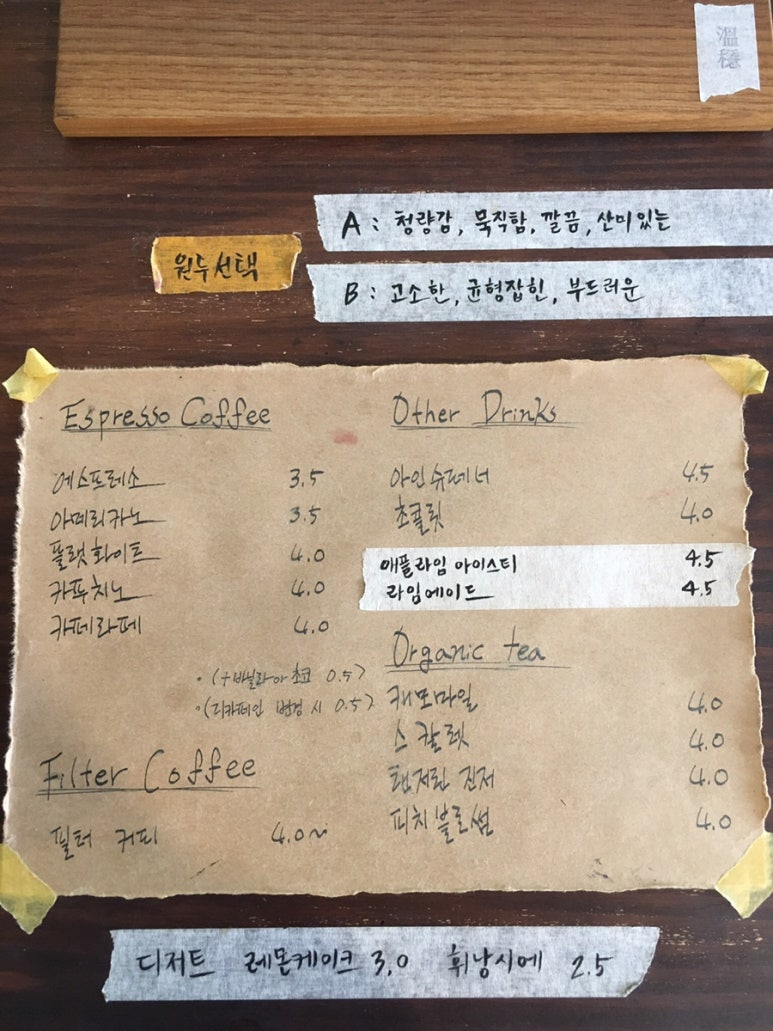 溫
穩
원두선택
A : 청량감, 묵직함, 깔끔, 산미있는
B : 고소한, 균형잡힌, 부드러운
Espresso Coffee
에스프레소 3.5
아메리카노 3.5
플랫화이트 4.0
카푸치노 4.0
카페라떼 4.0
•(+바닐라아 초코 0.5)
•(디카페인 변경 시 0.5)
Filter Coffee
필터 커피 4.0~
Other Drinks
아인슈페너 4.5
초콜릿 4.0
애플라임 아이스티 4.5
라임에이드 4.5
Organic tea
캐모마일 4.0
스칼렛 4.0
탠저린 진저 4.0
피치블로썸 4.0
디저트 레몬케이크 3.0 휘낭시에 2.5